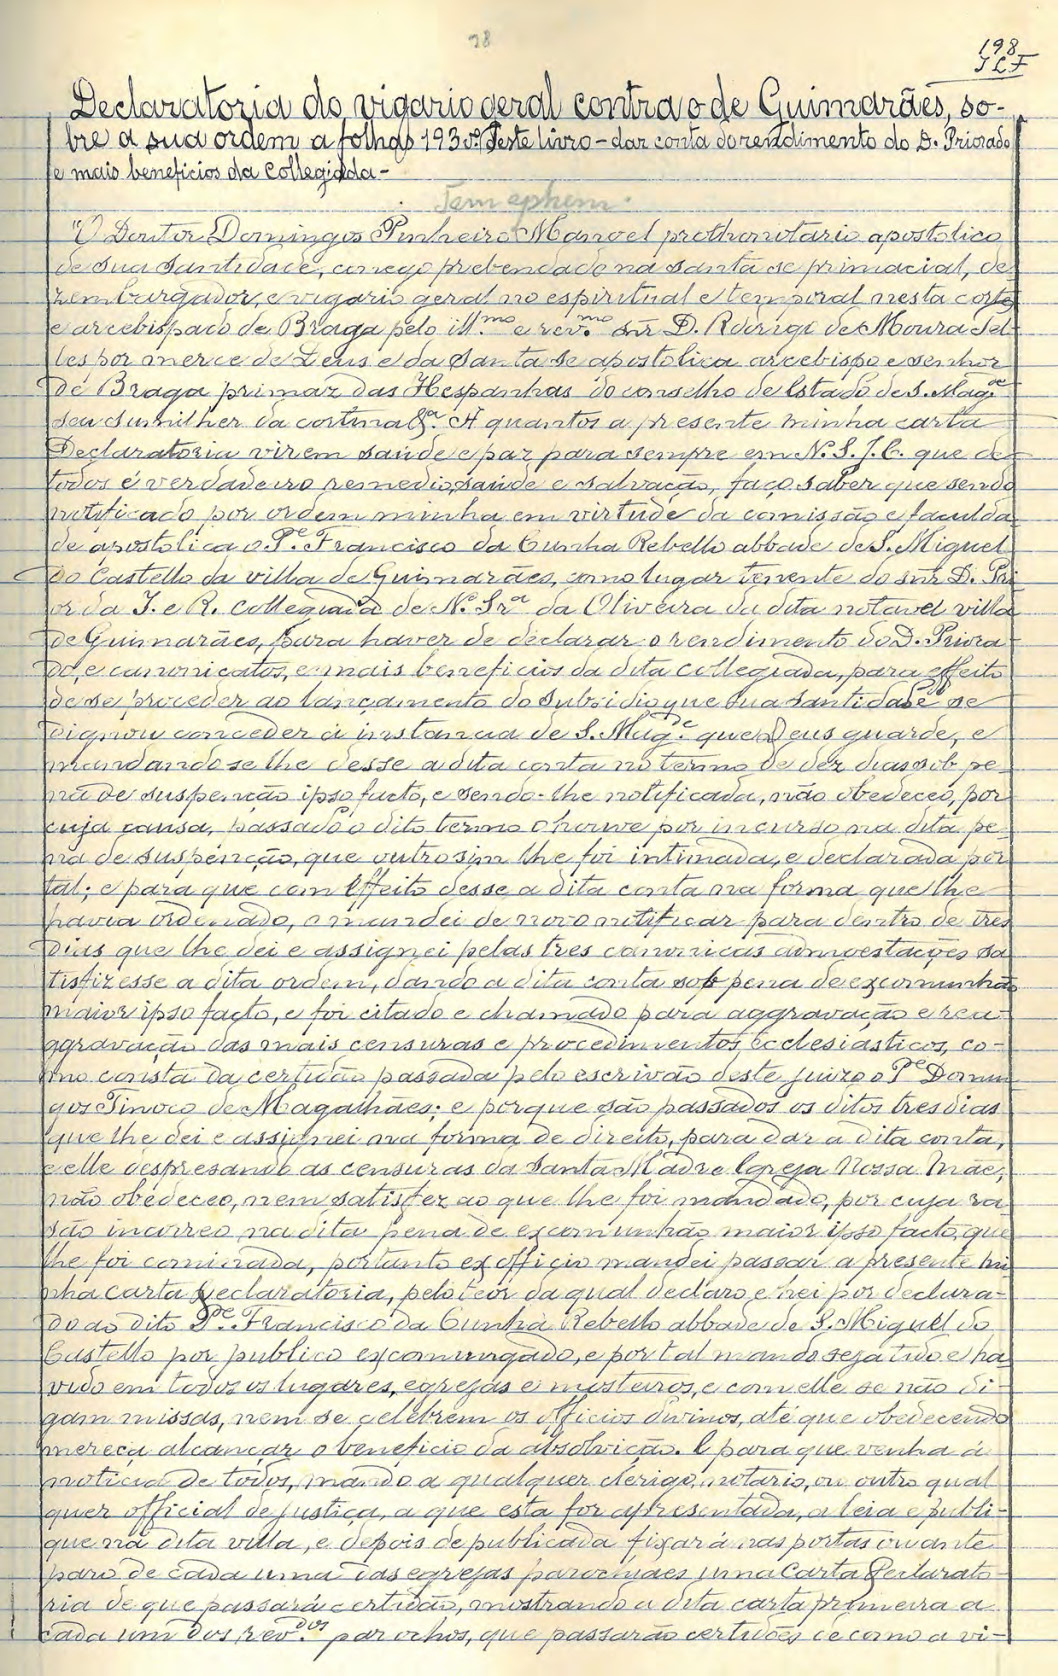 98
198
J L F
Declaratoria do vigario geral contra o de Guimarães, so-
bre a sua ordem a folhas 193 vº deste livro - dar conta do rendimento do D. Priorado
e mais beneficios da Collegiada -
Tem ephem.
"O Doutor Domingos Pinheiro Manoel prothonotario apostolico
de sua santidade, conego prebendado na santa se primacial, de-
zemburgador, e vigario geral no espiritual e temporal nesta corte
e arcebispado de Braga pelo ill.mo e rev.mo snr D. Rodrigo de Moura Tel-
les por merce de Deus e da Santa se apostolica arcebispo e senhor
de Braga primaz das Hespanhas do conselho de Estado de S. Mag.de
seu sumilher da cortina &.a A quantos a presente minha carta
Declaratoria virem saude e paz para sempre em N. S. J. C. que de
todos é verdadeiro remedio, saude e salvação, faço saber que sendo
notificado por ordem minha em virtude da comissão e faculda-
de apostolica o P.e Francisco da Cunha Rebello abbade de S. Miguel
do Castello da villa de Guimarães, como lugar tenente do snr D. Pri-
or da I. e R. Collegiada de N.a Sr.a da Oliveira da dita notavel villa
de Guimarães, para haver de declarar o rendimento do D. Priora-
do, e canonicatos, e mais beneficios da dita collegiada, para effeito
de se proceder ao lançamento do subsidio que sua santidade se
dignou conceder à instancia de S. Mag.de que Deus guarde, e
mandando se lhe desse a dita conta no termo de dez dias sob pe-
na de suspenção ipso facto, e sendo-lhe notificada, não obedeceo, por
cuja causa, passado o dito termo o houve por incurso na dita pe-
na de suspenção, que outrosim lhe foi intimada, e declarada por
tal; e para que com effeito desse a dita conta na forma que lhe
havia ordenado, o mandei de novo notificar para dentro de tres
dias que lhe dei e assignei pelas tres canonicas admoestações sa-
tisfizesse a dita ordem, dando a dita conta sob pena de excomunhão
maior ipso facto, e foi citado e chamado para aggravação e rea-
ggravação das mais censuras e procedimentos Ecclesiasticos, co-
mo consta da certidão passada pelo escrivão deste juizo o P.e Domin-
gos Tinoco de Magalhães; e porque são passados os ditos tres dias
que lhe dei e assignei na forma de direito, para dar a dita conta,
e elle despresando as censuras da Santa Madre Igreja Nossa Mãe,
não obedeceo, nem satisfez ao que lhe foi mandado, por cuja ra-
são incorreo na dita pena de excomunhão maior ipso facto, que
lhe foi cominada, portanto ex officio mandei passar a presente mi-
nha carta declaratoria, pelo teor da qual declaro, e hei por declara-
do ao dito P.e Francisco da Cunha Rebello abbade de S. Miguel do
Castello por publico excomungado, e por tal mando seja tido e ha-
vido em todos os lugares, egrejas e mosteiros, e com elle se não di-
gam missas, nem se celebrem os officios divinos, até que obedecendo
mereça alcançar o beneficio da absolvição. E para que venha á
noticia de todos, mando a qualquer clerigo, notario, ou outro qual
quer official de justiça, a que esta for apresentada, a leia e publi-
que na dita villa, e depois de publicada fixará nas portas ou ante
paro de cada uma das egrejas parochiaes uma Carta Declarato-
ria de que passará certidão, mostrando a dita carta primeira a
cada um dos rev.dos parochos, que passarão certidões de como a vi-